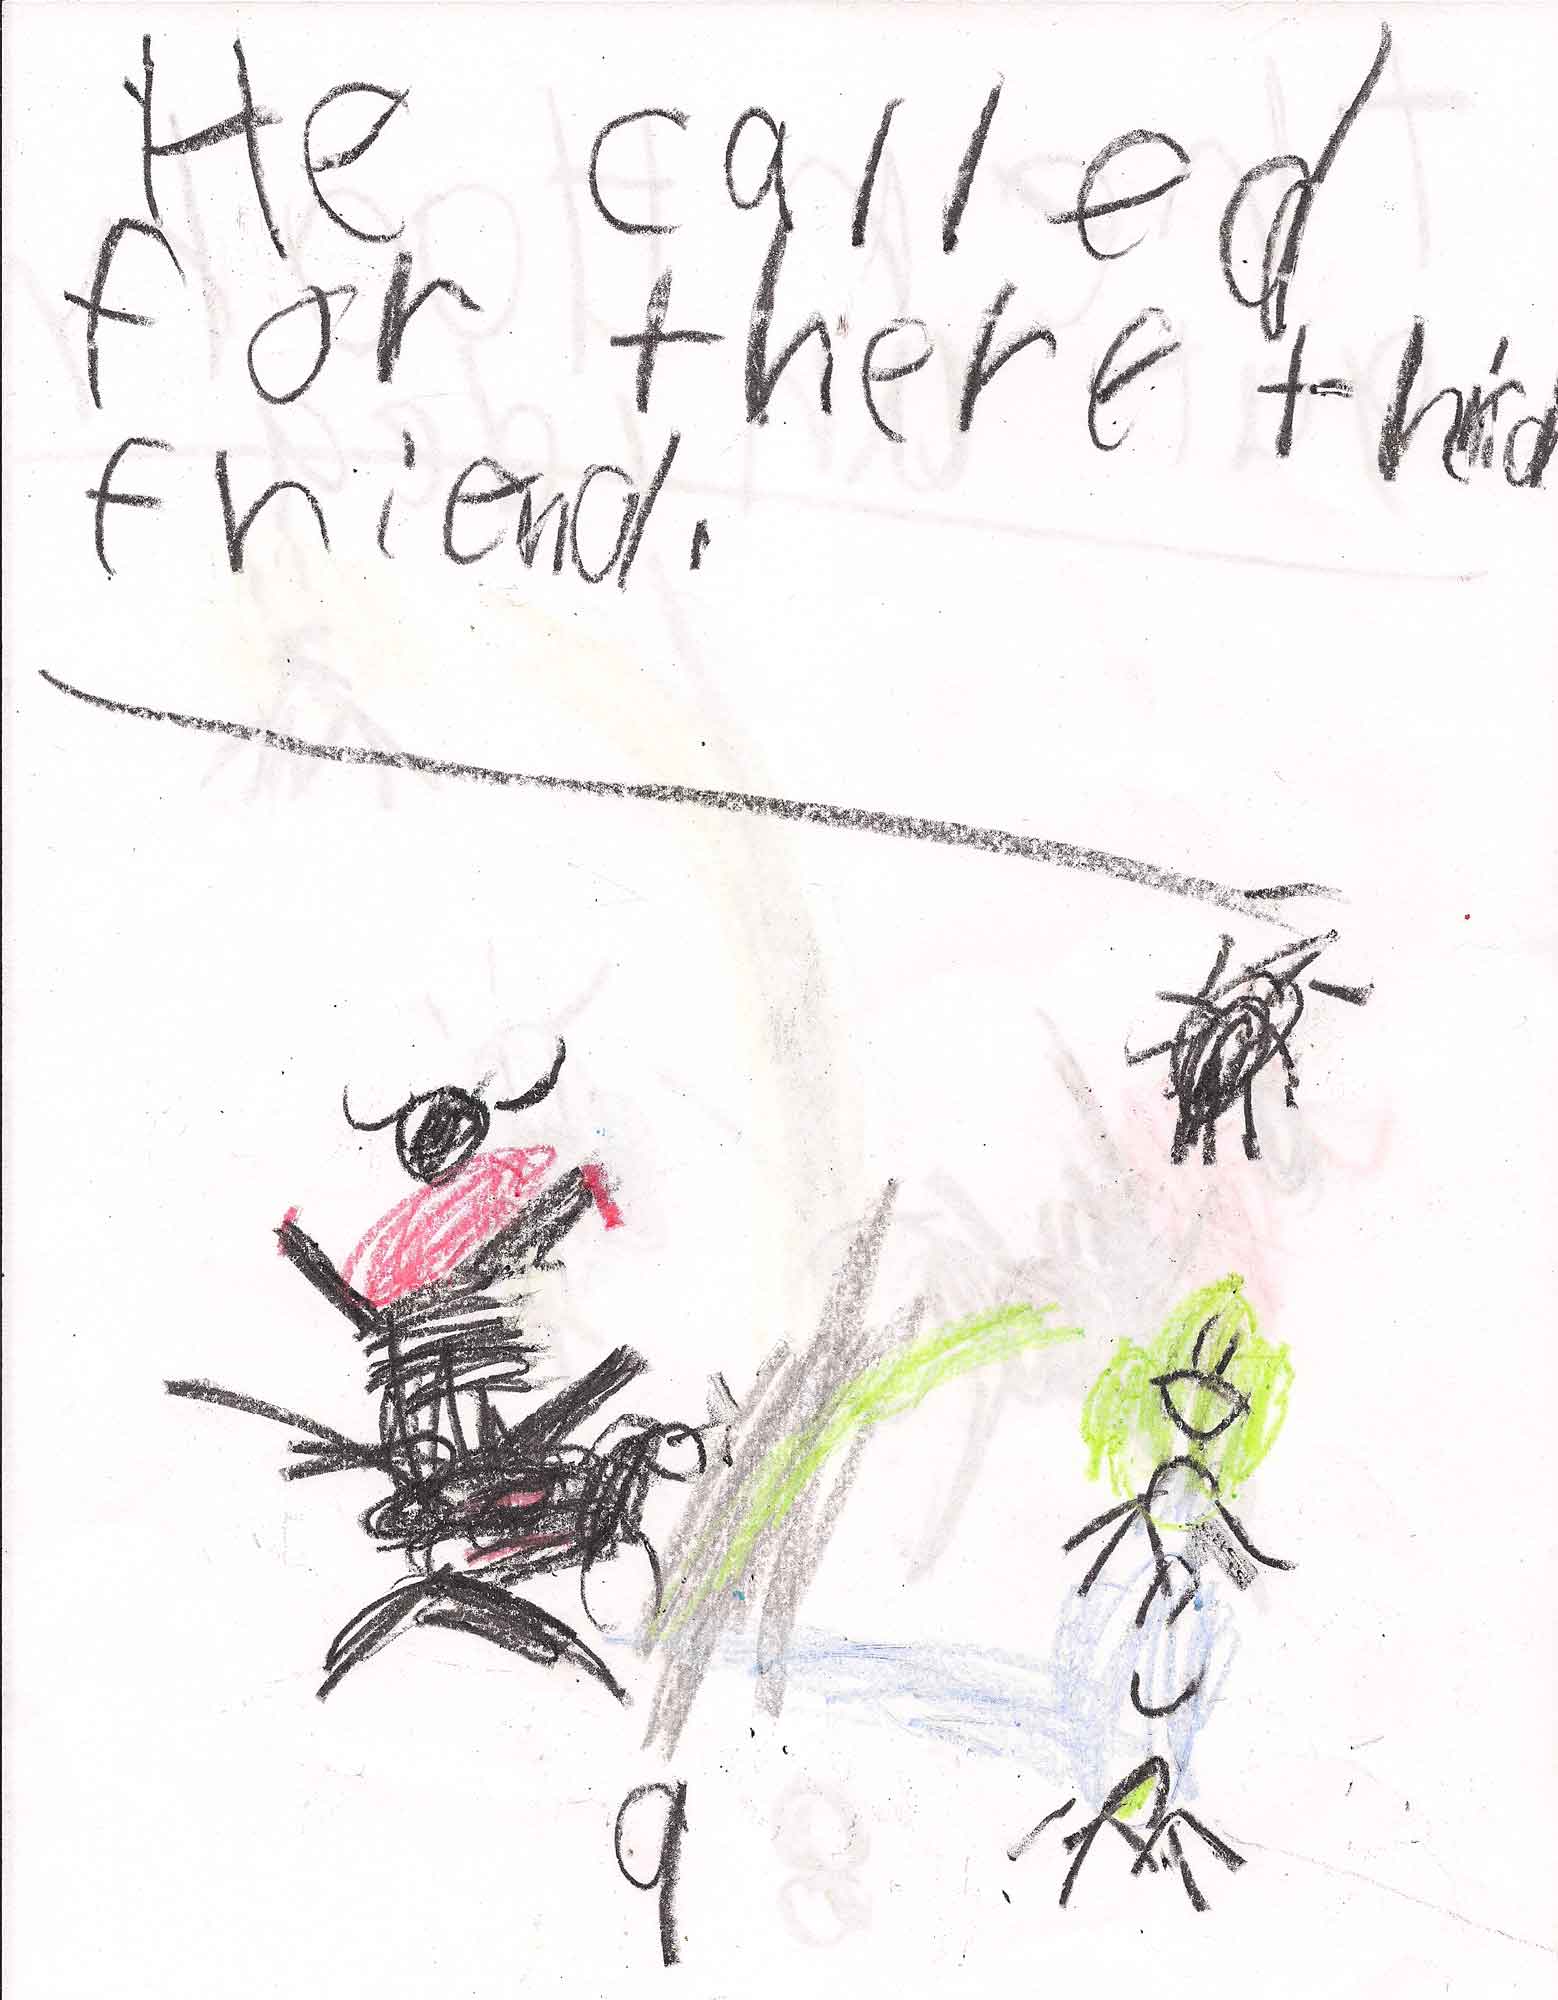 He called
for there third
friend.
9